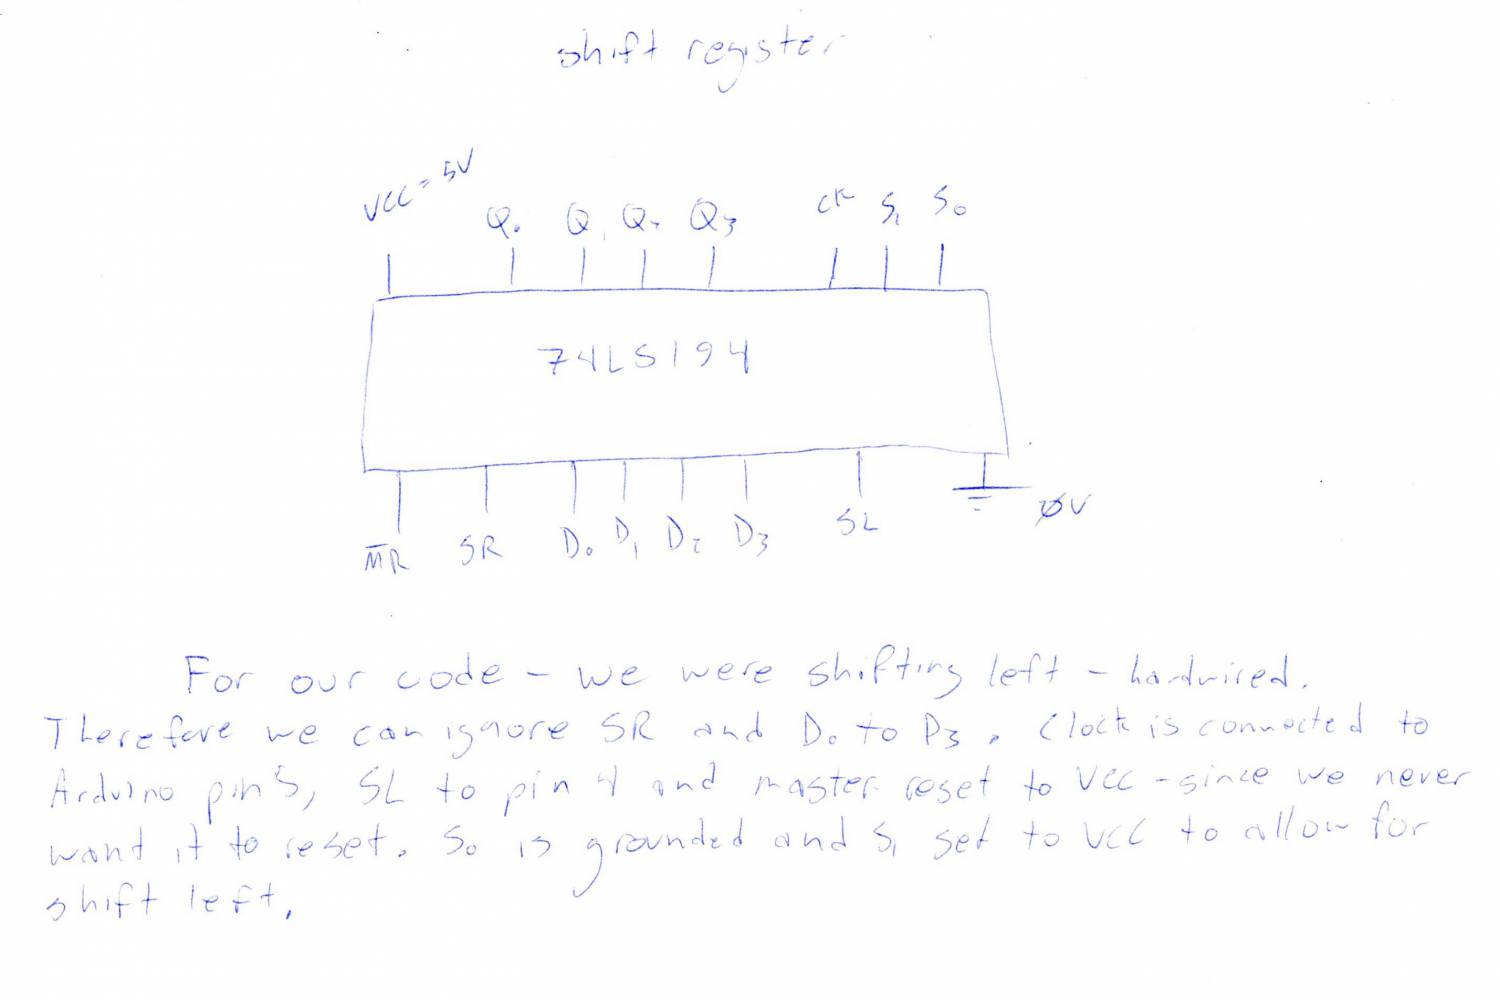 shift register
VCC = 5V
Q0 Q1 Q2 Q3 CK S1 S0
74LS194
MR SR D0 D1 D2 D3 SL 0V
For our code - we were shifting left - hardwired.
Therefore we can ignore SR and D0 to D3. Clock is connected to
Arduino pin 5, SL to pin 4 and master reset to VCC - since we never
want it to reset. S0 is grounded and S1 set to VCC to allow for
shift left.